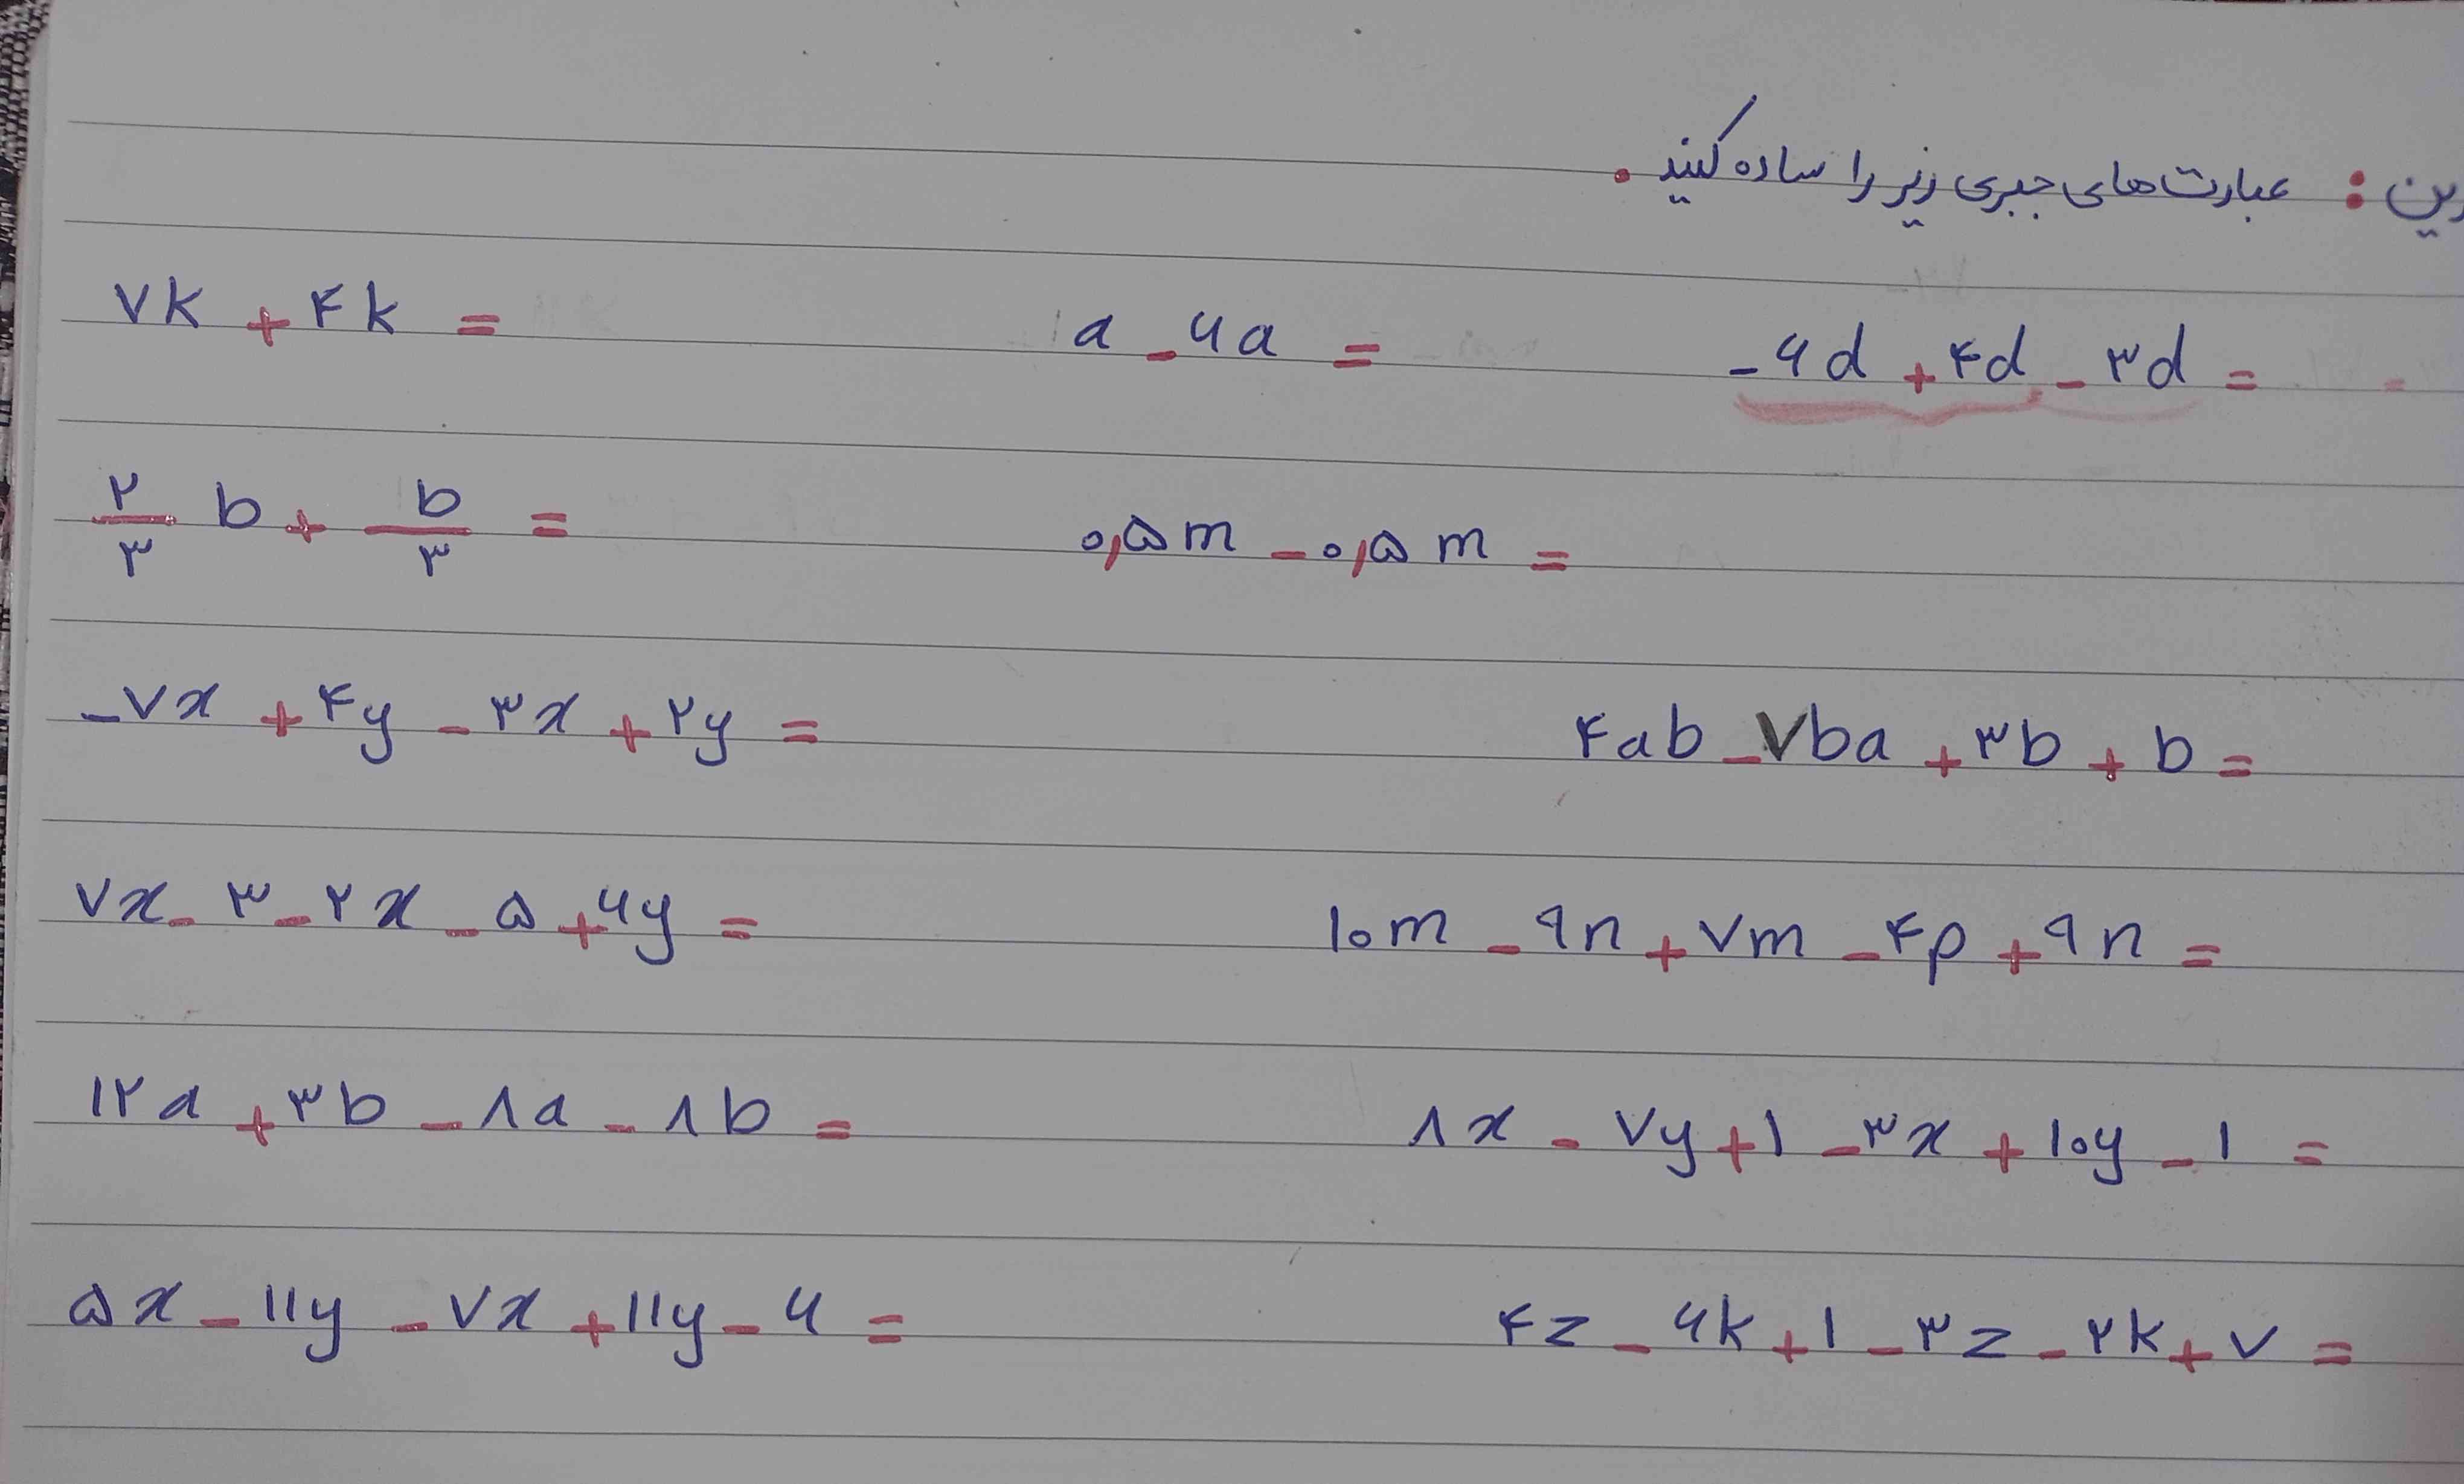 رین : عبارت‌های جبری زیر را ساده کنید .
۷k + ۴k = a - ۶a = -۶d + ۴d - ۳d =
۲/۳ b + b/۳ = ۰,۵m - ۰,۵m =
-۷x + ۴y - ۳x + ۲y = ۴ab - ۷ba + ۳b + b =
۷x - ۳ - ۲x - ۵ + ۶y = ۱۰m - ۹n + ۷m - ۴p + ۹n =
۱۲a + ۳b - ۸a - ۸b = ۸x - ۷y + ۱ - ۳x + ۱۰y - ۱ =
۵x - ۱۱y - ۷x + ۱۱y - ۶ = ۴z - ۶k + ۱ - ۳z - ۲k + ۷ =